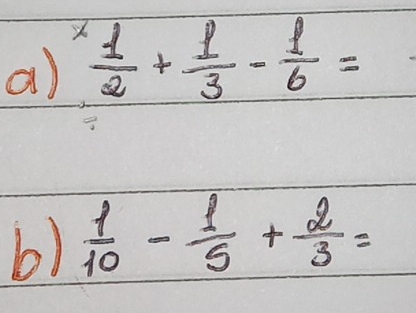 a) 1/2 + 1/3 - 1/6 =
b) 1/10 - 1/5 + 2/3 =